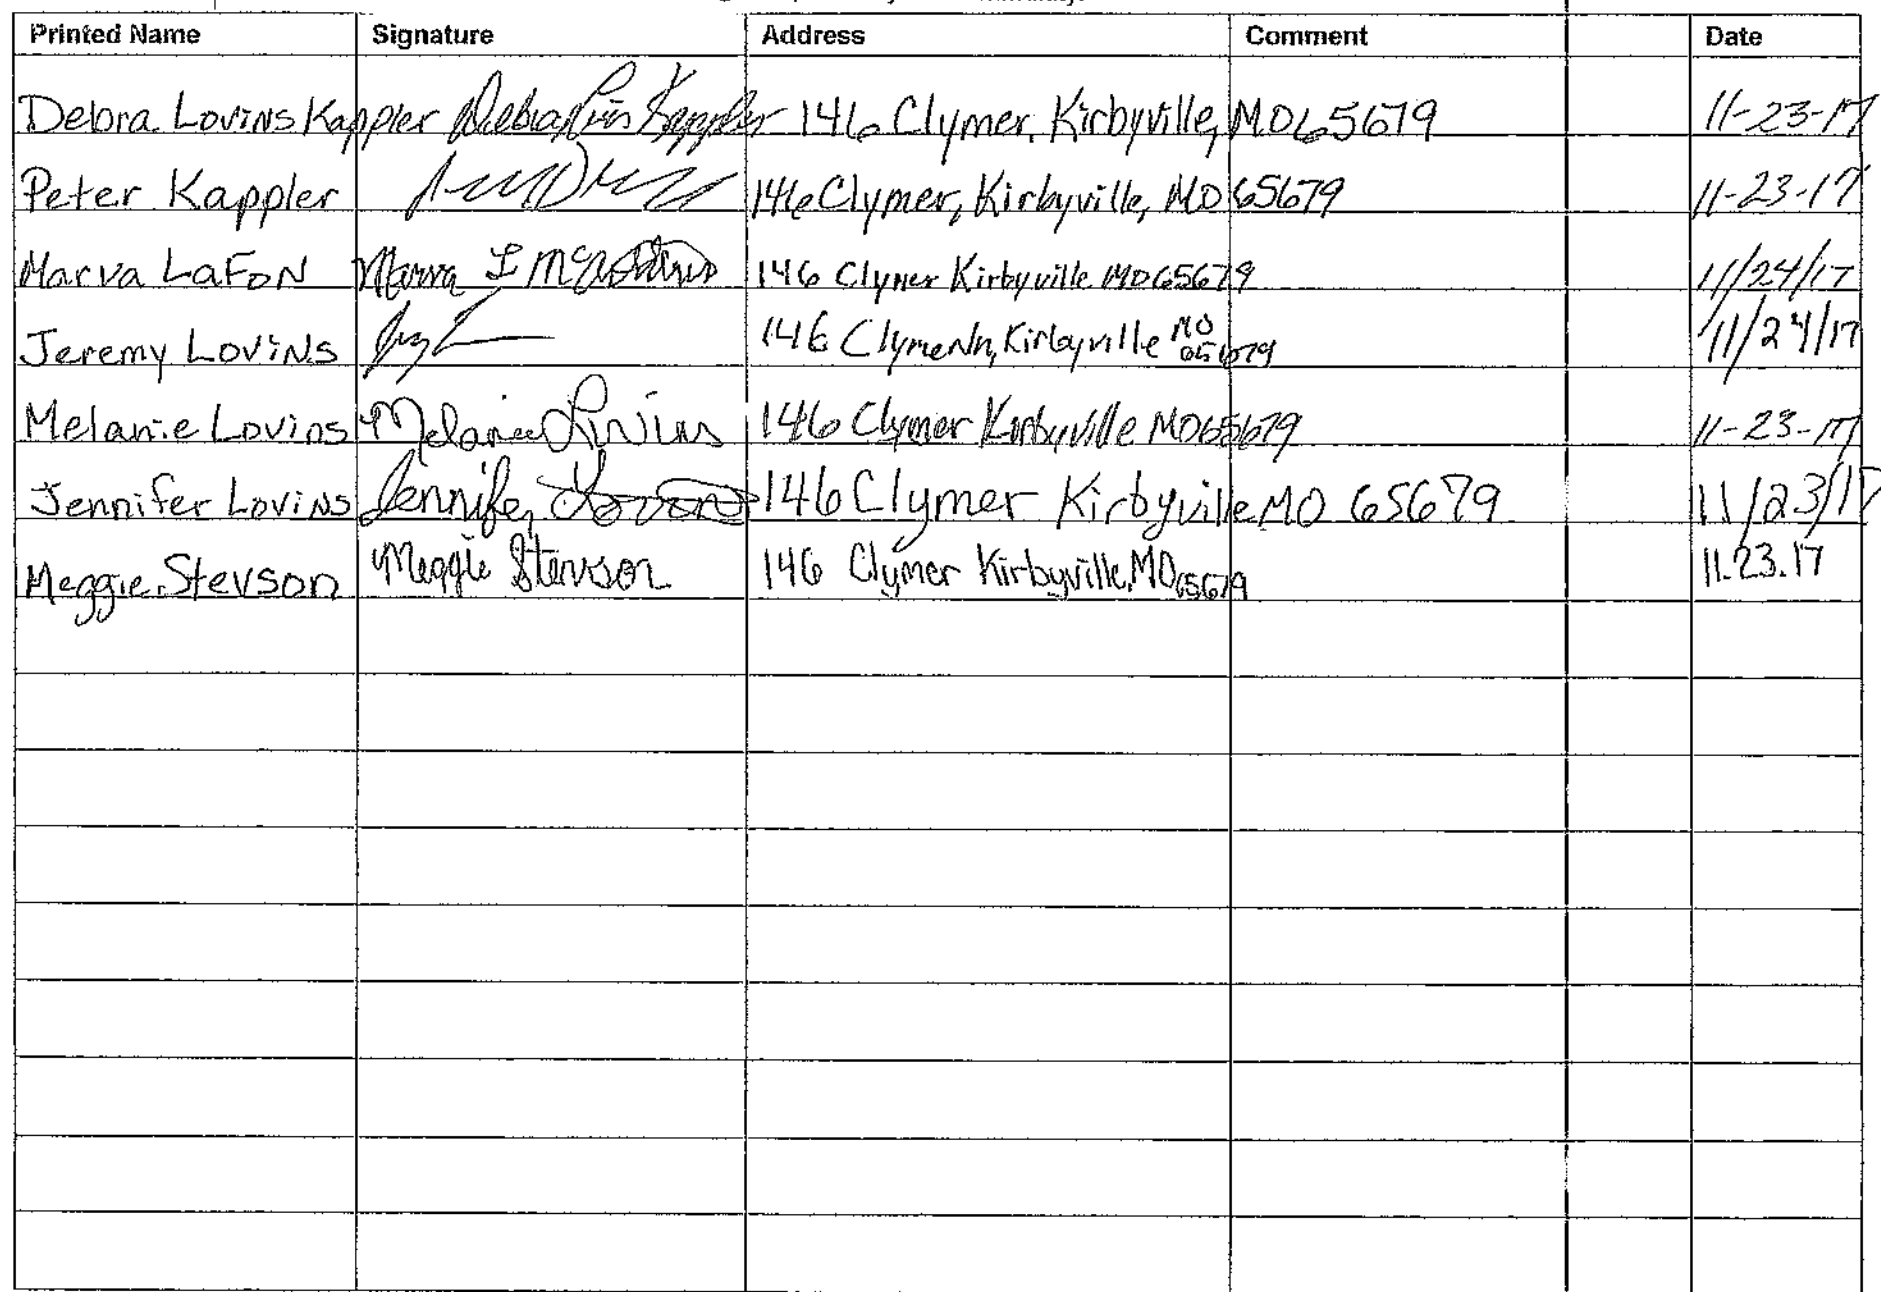 Printed Name Signature Address Comment Date
Debra Lovins Kappler Debra Lovins Kappler 146 Clymer, Kirbyville, MO 65679 11-23-17
Peter Kappler 146 Clymer, Kirbyville, MO 65679 11-23-17
Marva LaFoN Marva L 146 Clymer Kirbyville MO 65679 11/24/17
Jeremy Lovins 146 Clymer Ln, Kirbyville MO 65679 11/24/17
Melanie Lovins Melanie Lovins 146 Clymer Kirbyville MO 65679 11-23-17
Jennifer Lovins Jennifer Lovins 146 Clymer Kirbyville MO 65679 11/23/17
Meggie Stevson Meggie Stevson 146 Clymer Kirbyville, MO 65679 11.23.17